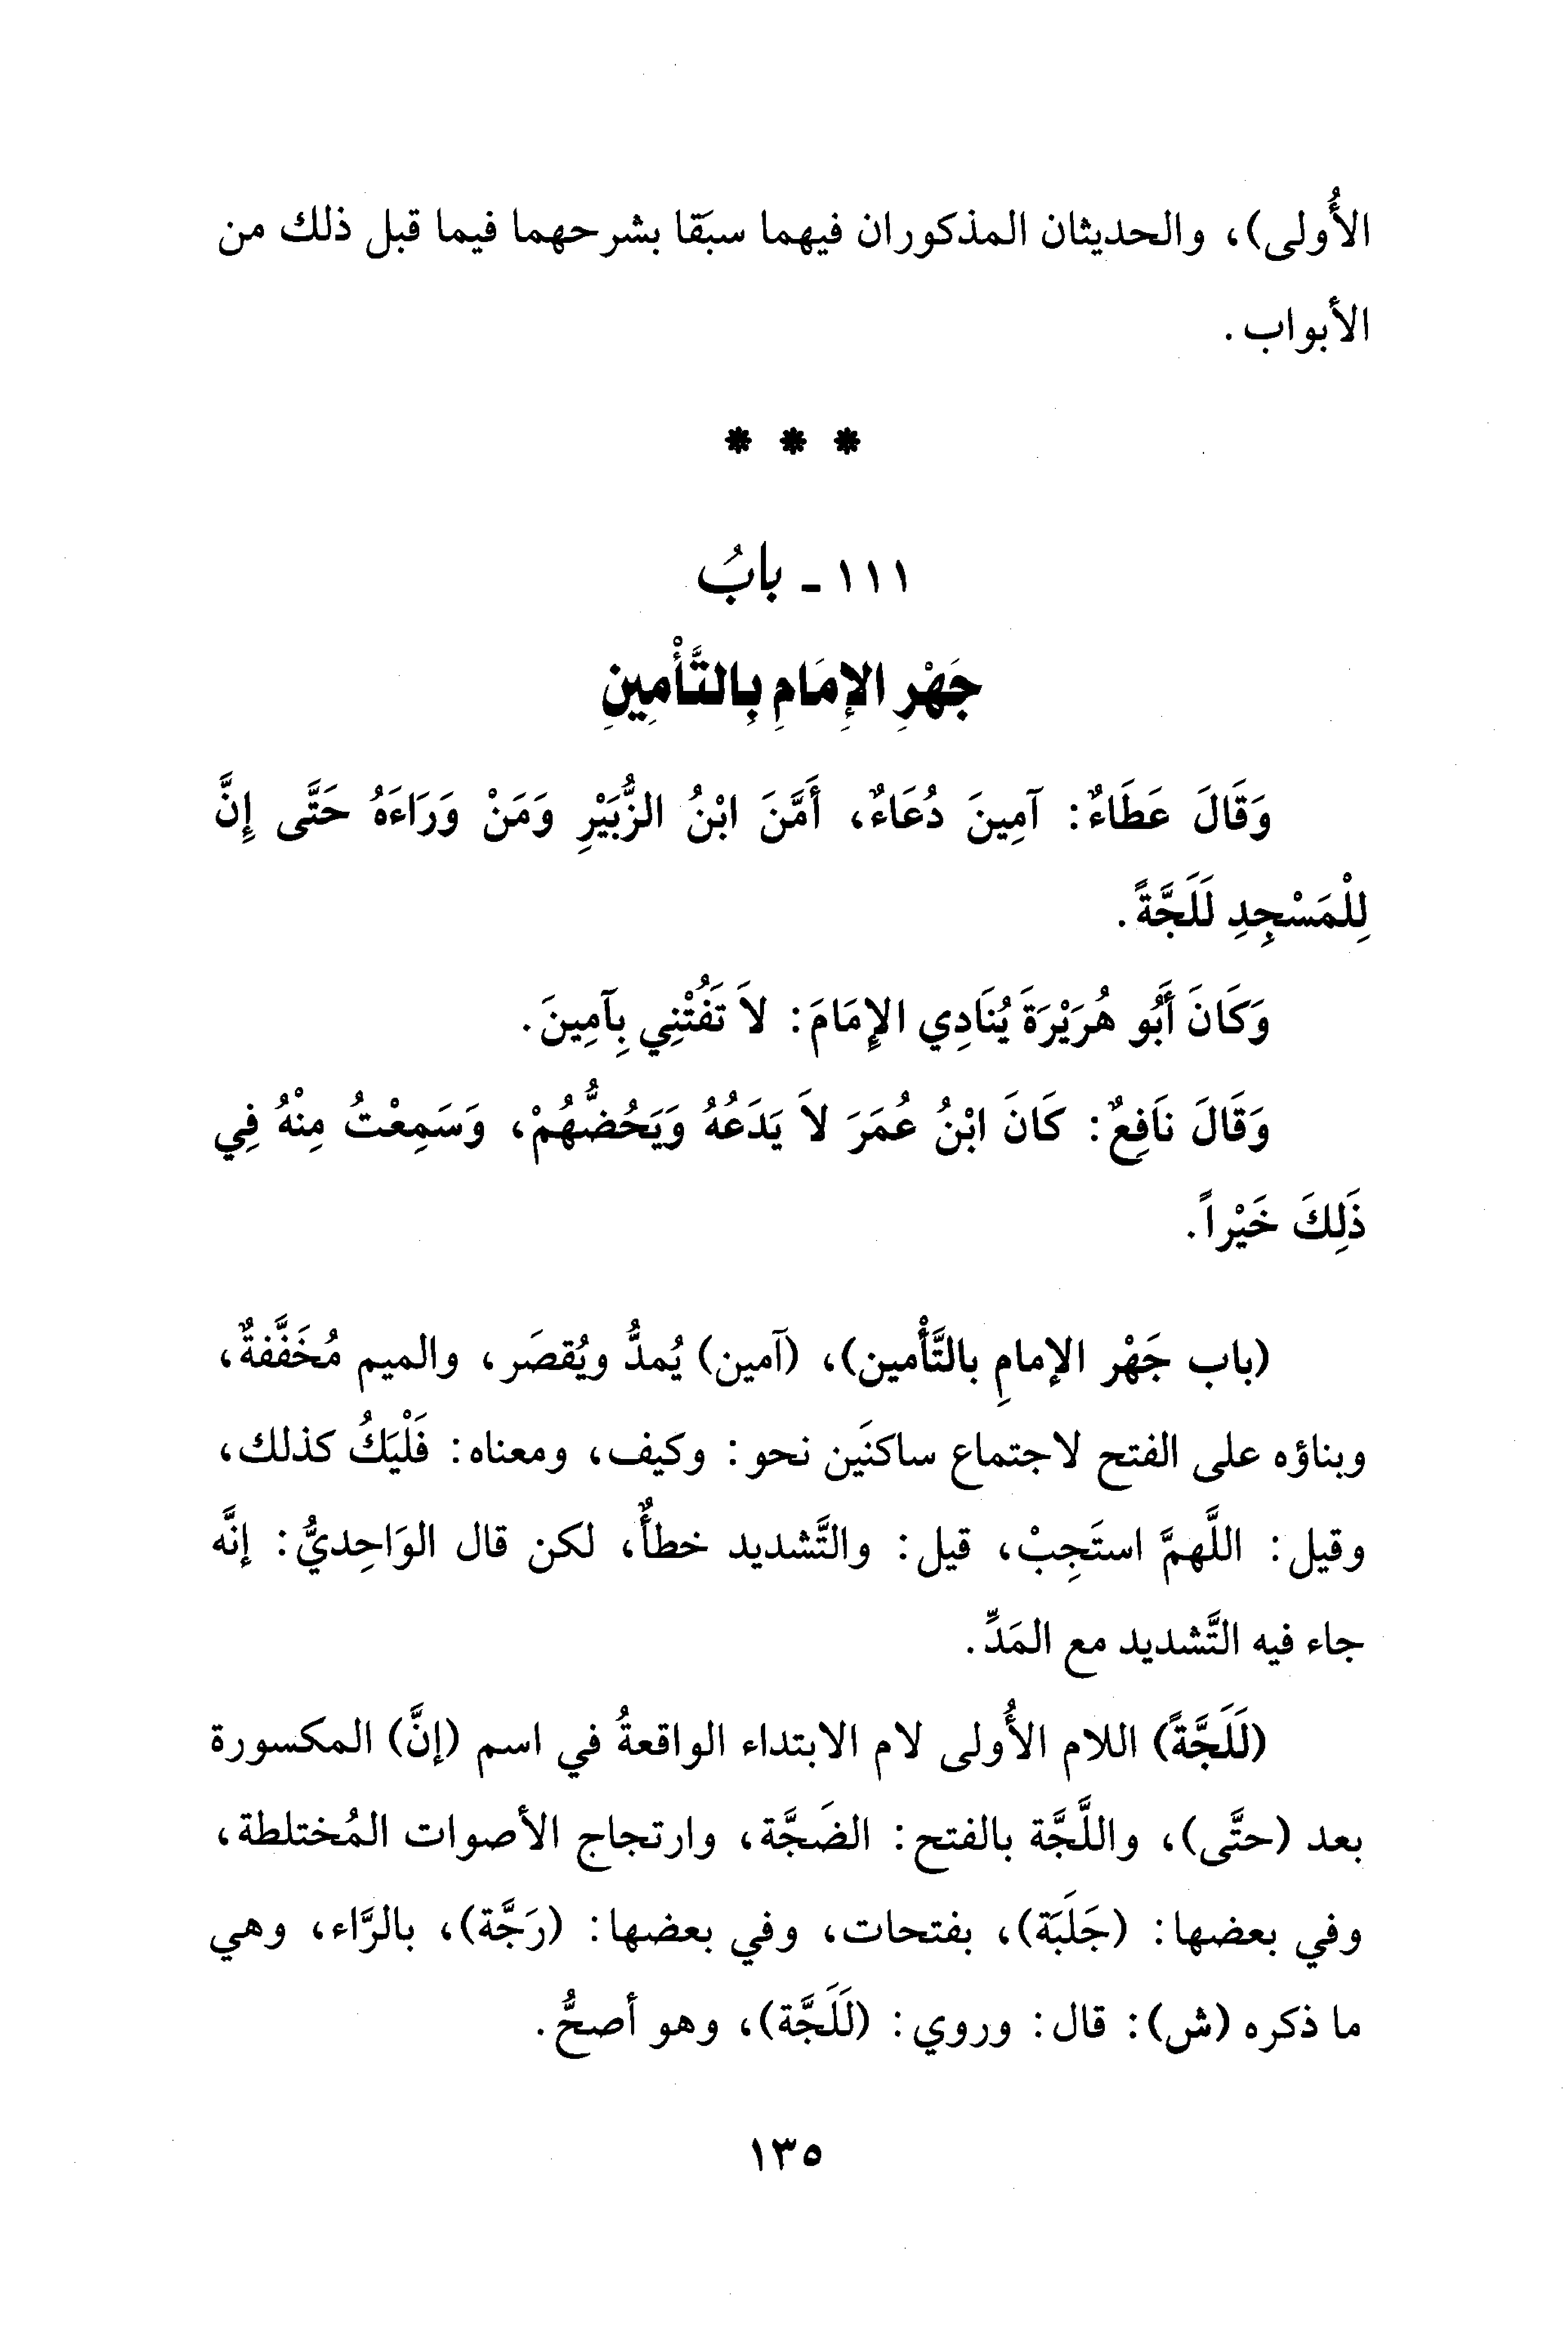 الأُولى)، والحديثان المذكوران فيهما سبَقا بشرحهما فيما قبل ذلك من
الأبواب.
* * *
١١١ - بابُ
جَهْرِ الإِمَامِ بِالتَّأْمِينِ
وَقَالَ عَطَاءٌ: آمِينَ دُعَاءٌ، أَمَّنَ ابْنُ الزُّبَيْرِ وَمَنْ وَرَاءَهُ حَتَّى إِنَّ
لِلْمَسْجِدِ لَلَجَّةً.
وَكَانَ أَبُو هُرَيْرَةَ يُنَادِي الإِمَامَ: لاَ تَفُتْنِي بِآمِينَ.
وَقَالَ نَافِعٌ: كَانَ ابْنُ عُمَرَ لاَ يَدَعُهُ وَيَحُضُّهُمْ، وَسَمِعْتُ مِنْهُ فِي
ذَلِكَ خَيْراً.
(باب جَهْر الإمامِ بالتَّأْمين)، (آمين) يُمدُّ ويُقصَر، والميم مُخَفَّفةٌ،
وبناؤه على الفتح لاجتماع ساكنَين نحو: وكيف، ومعناه: فَلْيَكُ كذلك،
وقيل: اللَّهمَّ استَجِبْ، قيل: والتَّشديد خطأٌ، لكن قال الوَاحِديُّ: إنَّه
جاء فيه التَّشديد مع المَدِّ.
(لَلَجَّةً) اللام الأُولى لام الابتداء الواقعةُ في اسم (إنَّ) المكسورة
بعد (حتَّى)، واللَّجَّة بالفتح: الضَجَّة، وارتجاج الأصوات المُختلطة،
وفي بعضها: (جَلَبَة)، بفتحات، وفي بعضها: (رَجَّة)، بالرَّاء، وهي
ما ذكره (ش): قال: وروي: (لَلَجَّة)، وهو أصحُّ.
١٣٥